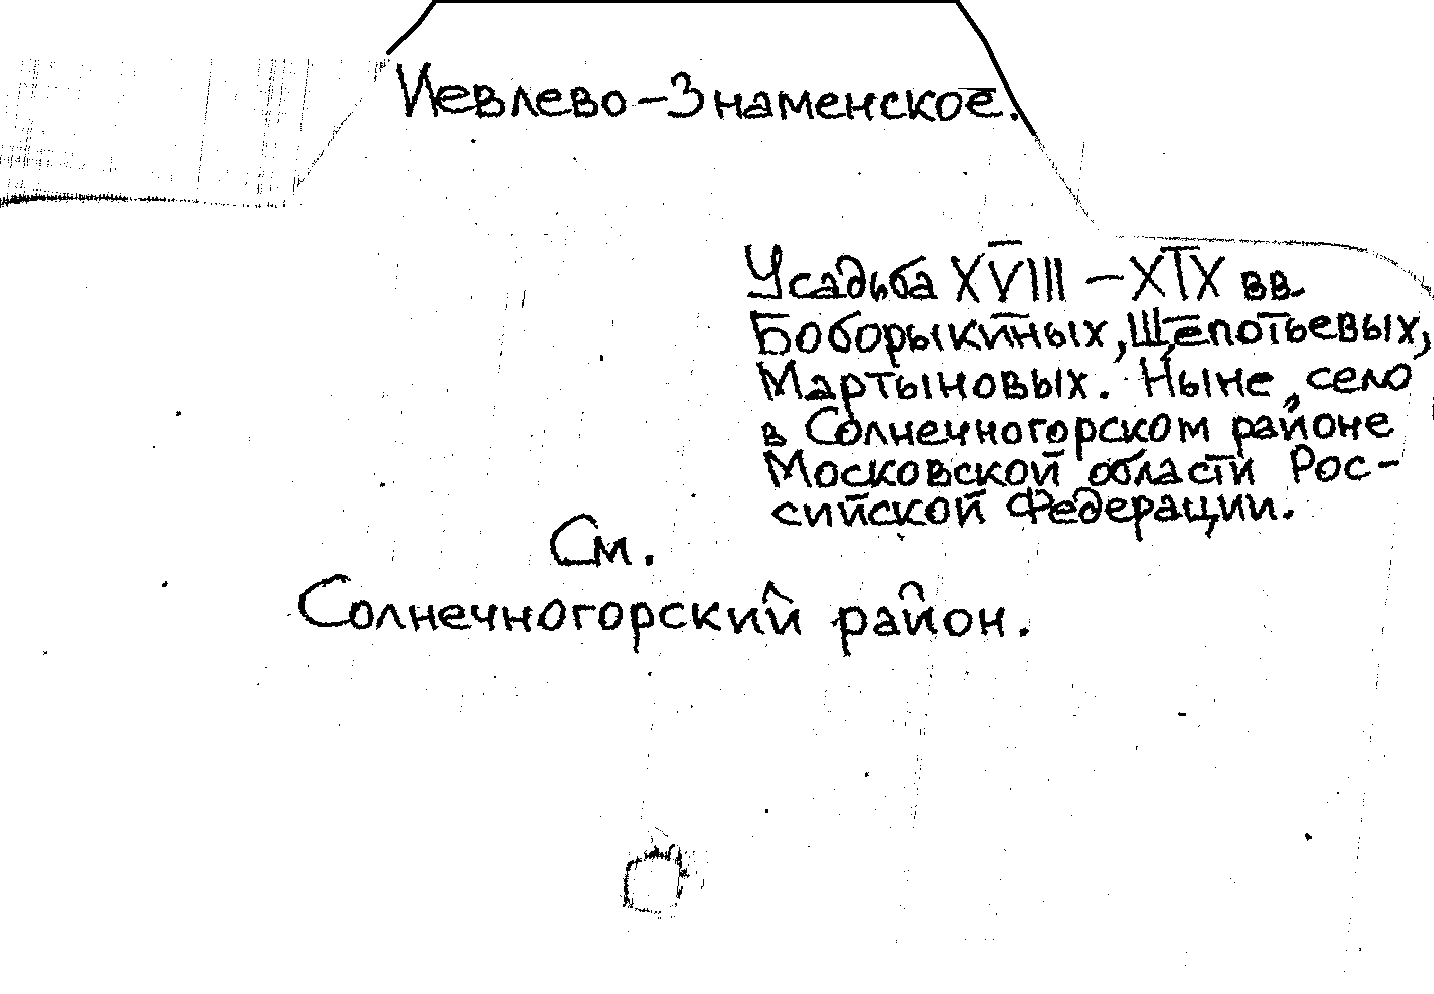 Иевлево-Знаменское.
Усадьба XVIII – XIX вв.
Боборыкиных, Щепотьевых,
Мартыновых. Ныне, село
в Солнечногорском районе
Московской области Рос-
сийской Федерации.
См.
Солнечногорский район.